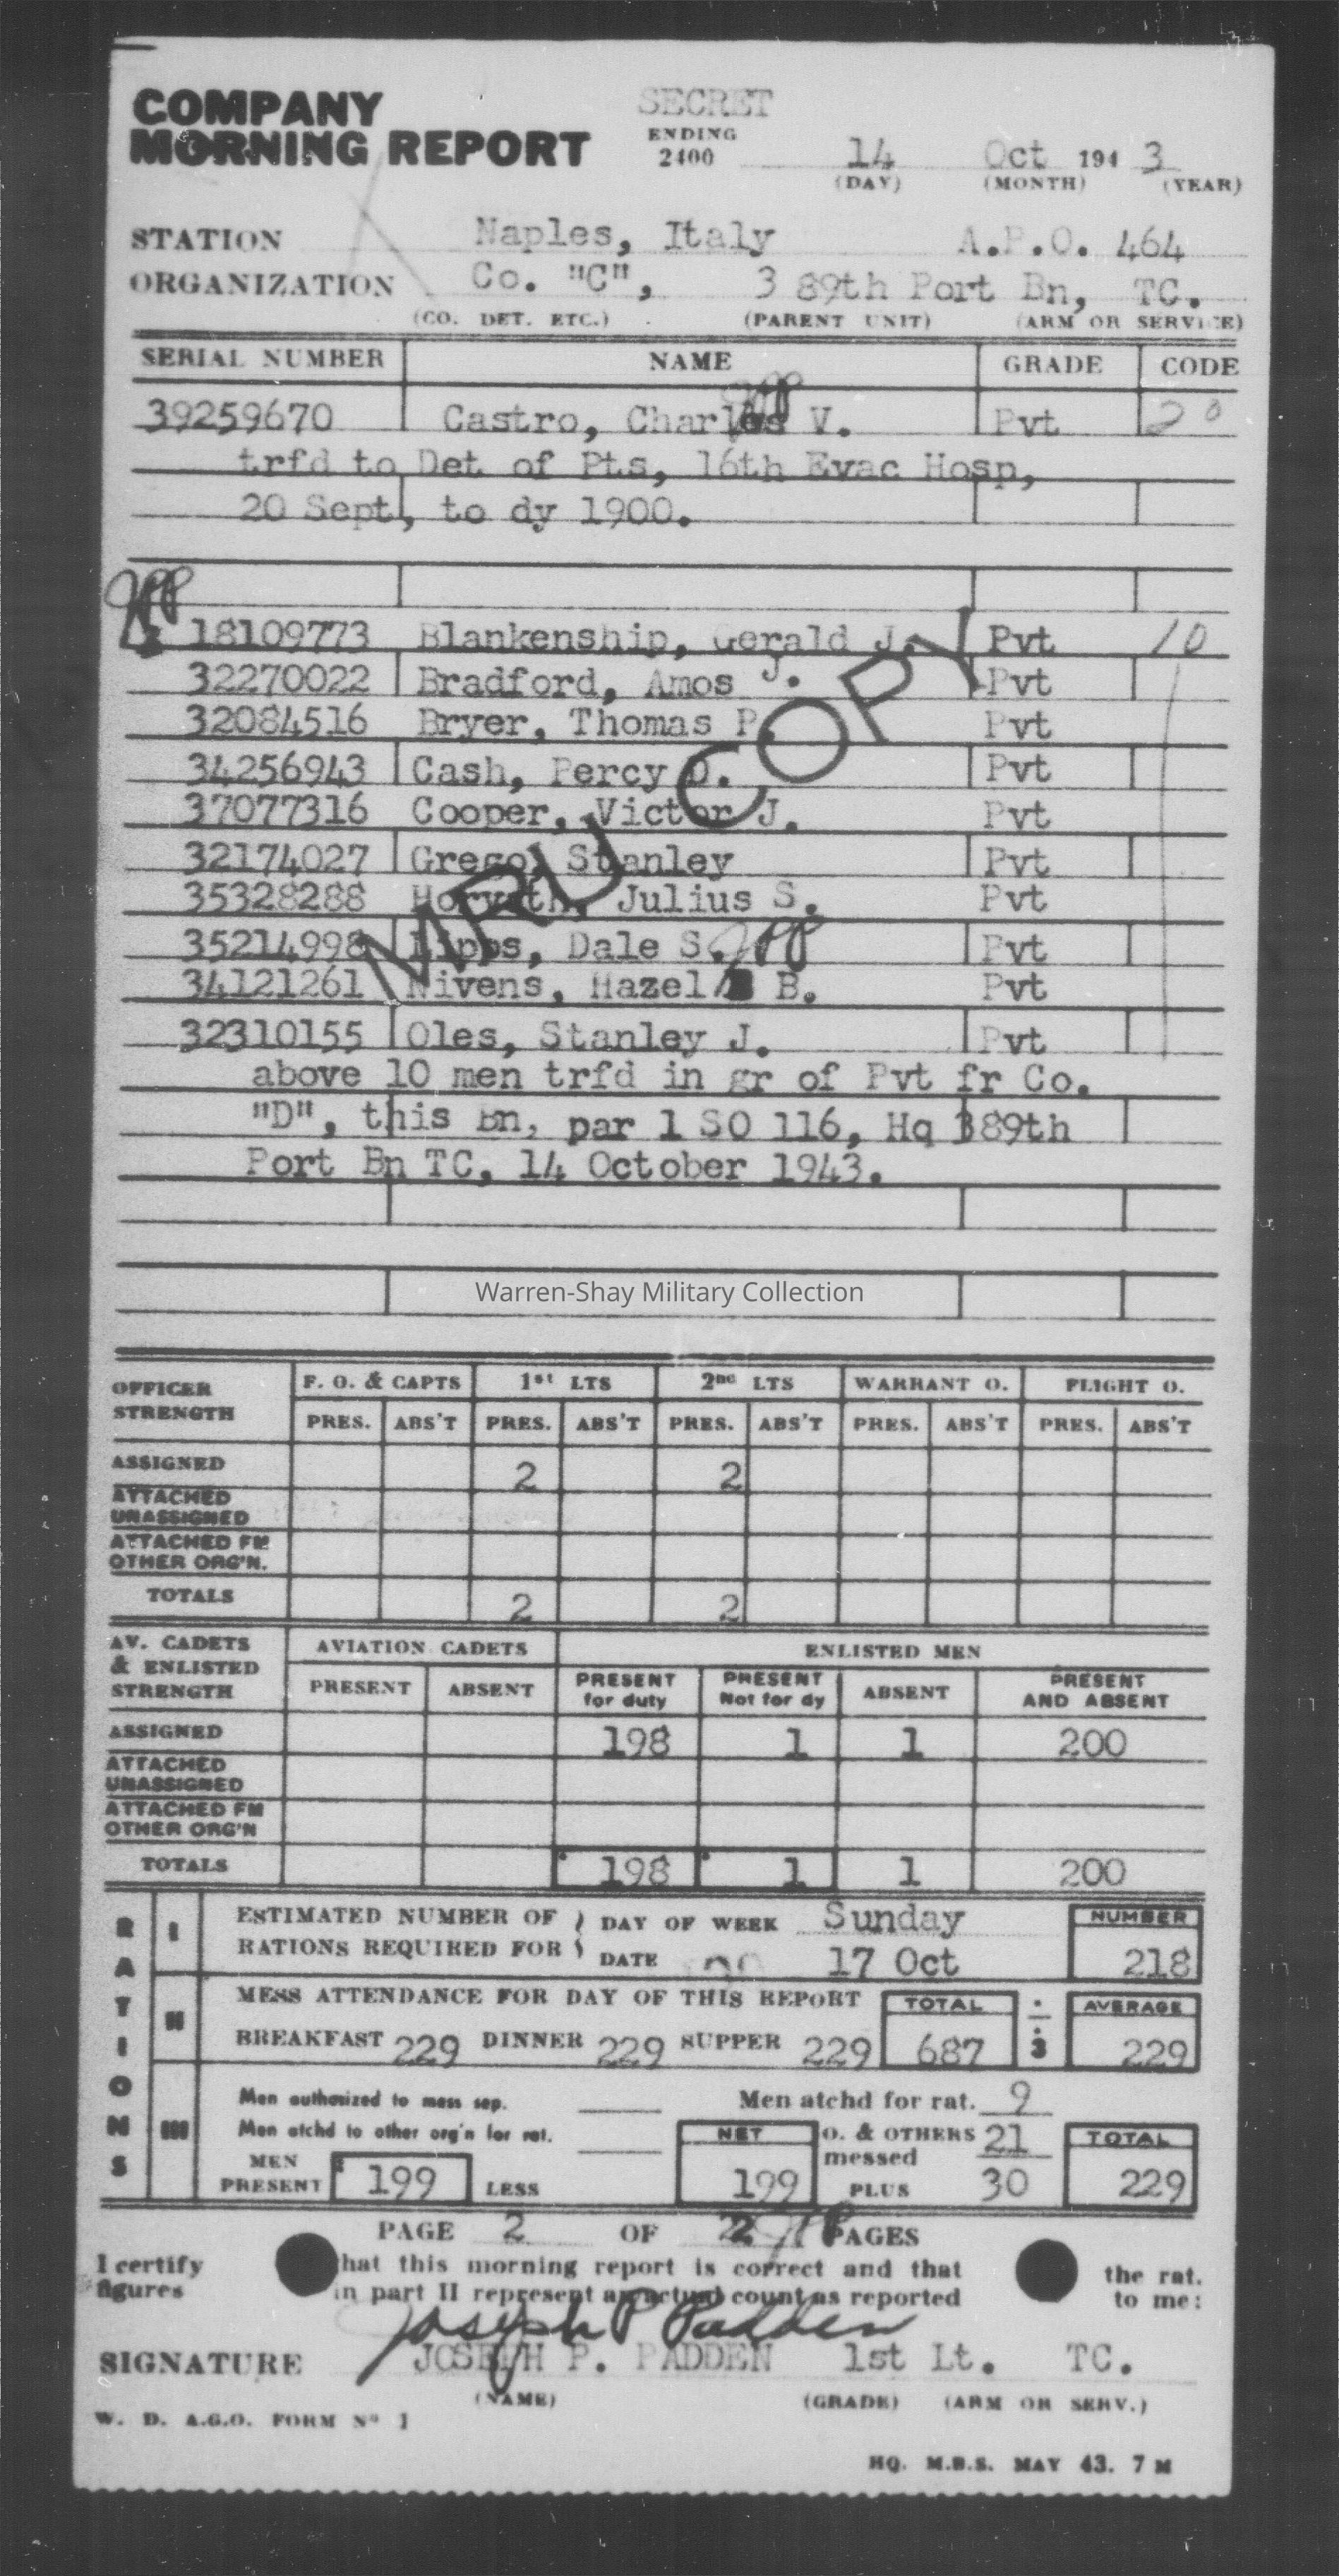 COMPANY
MORNING REPORT
SECRET
ENDING
2400 14 Oct 194 3
(DAY) (MONTH) (YEAR)
STATION Naples, Italy A.P.O. 464
ORGANIZATION Co. "C", 3 89th Port Bn, TC.
(CO. DET. ETC.) (PARENT UNIT) (ARM OR SERVICE)
SERIAL NUMBER NAME GRADE CODE
39259670 Castro, Charles V. Pvt 20
trfd to Det of Pts, 16th Evac Hosp,
20 Sept, to dy 1900.
18109773 Blankenship, Gerald J. Pvt 10
32270022 Bradford, Amos J. Pvt
32084516 Bryer, Thomas P. Pvt
34256943 Cash, Percy D. Pvt
37077316 Cooper, Victor J. Pvt
32174027 Grego, Stanley Pvt
35328288 Horvath, Julius S. Pvt
35214998 Lipps, Dale S. Pvt
34121261 Nivens, Hazel B. Pvt
32310155 Oles, Stanley J. Pvt
MRU COPY
above 10 men trfd in gr of Pvt fr Co.
"D", this Bn, par 1 SO 116, Hq 389th
Port Bn TC, 14 October 1943.
Warren-Shay Military Collection
OFFICER STRENGTH F. O. & CAPTS 1st LTS 2nd LTS WARRANT O. FLIGHT O.
PRES. ABS'T PRES. ABS'T PRES. ABS'T PRES. ABS'T PRES. ABS'T
ASSIGNED 2 2
ATTACHED
UNASSIGNED
ATTACHED FM
OTHER ORG'N.
TOTALS 2 2
AV. CADETS
& ENLISTED
STRENGTH
AVIATION CADETS ENLISTED MEN
PRESENT ABSENT PRESENT for duty PRESENT Not for dy ABSENT PRESENT AND ABSENT
ASSIGNED 198 1 1 200
ATTACHED
UNASSIGNED
ATTACHED FM
OTHER ORG'N
TOTALS 198 1 1 200
RATIONS
I ESTIMATED NUMBER OF DAY OF WEEK Sunday NUMBER
RATIONS REQUIRED FOR DATE 17 Oct 218
II MESS ATTENDANCE FOR DAY OF THIS REPORT TOTAL ÷ AVERAGE
BREAKFAST 229 DINNER 229 SUPPER 229 687 3 229
III Men authorized to mess sep. Men atchd for rat. 9
Men atchd to other org'n for rat. NET O. & OTHERS messed 21 TOTAL
MEN PRESENT 199 LESS 199 PLUS 30 229
PAGE 2 OF 2 PAGES
I certify that this morning report is correct and that the rat.
figures in part II represent an actual count as reported to me:
Joseph P Padden
SIGNATURE JOSEPH P. PADDEN 1st Lt. TC.
(NAME) (GRADE) (ARM OR SERV.)
W. D. A.G.O. FORM No 1
HQ. M.B.S. MAY 43. 7 M